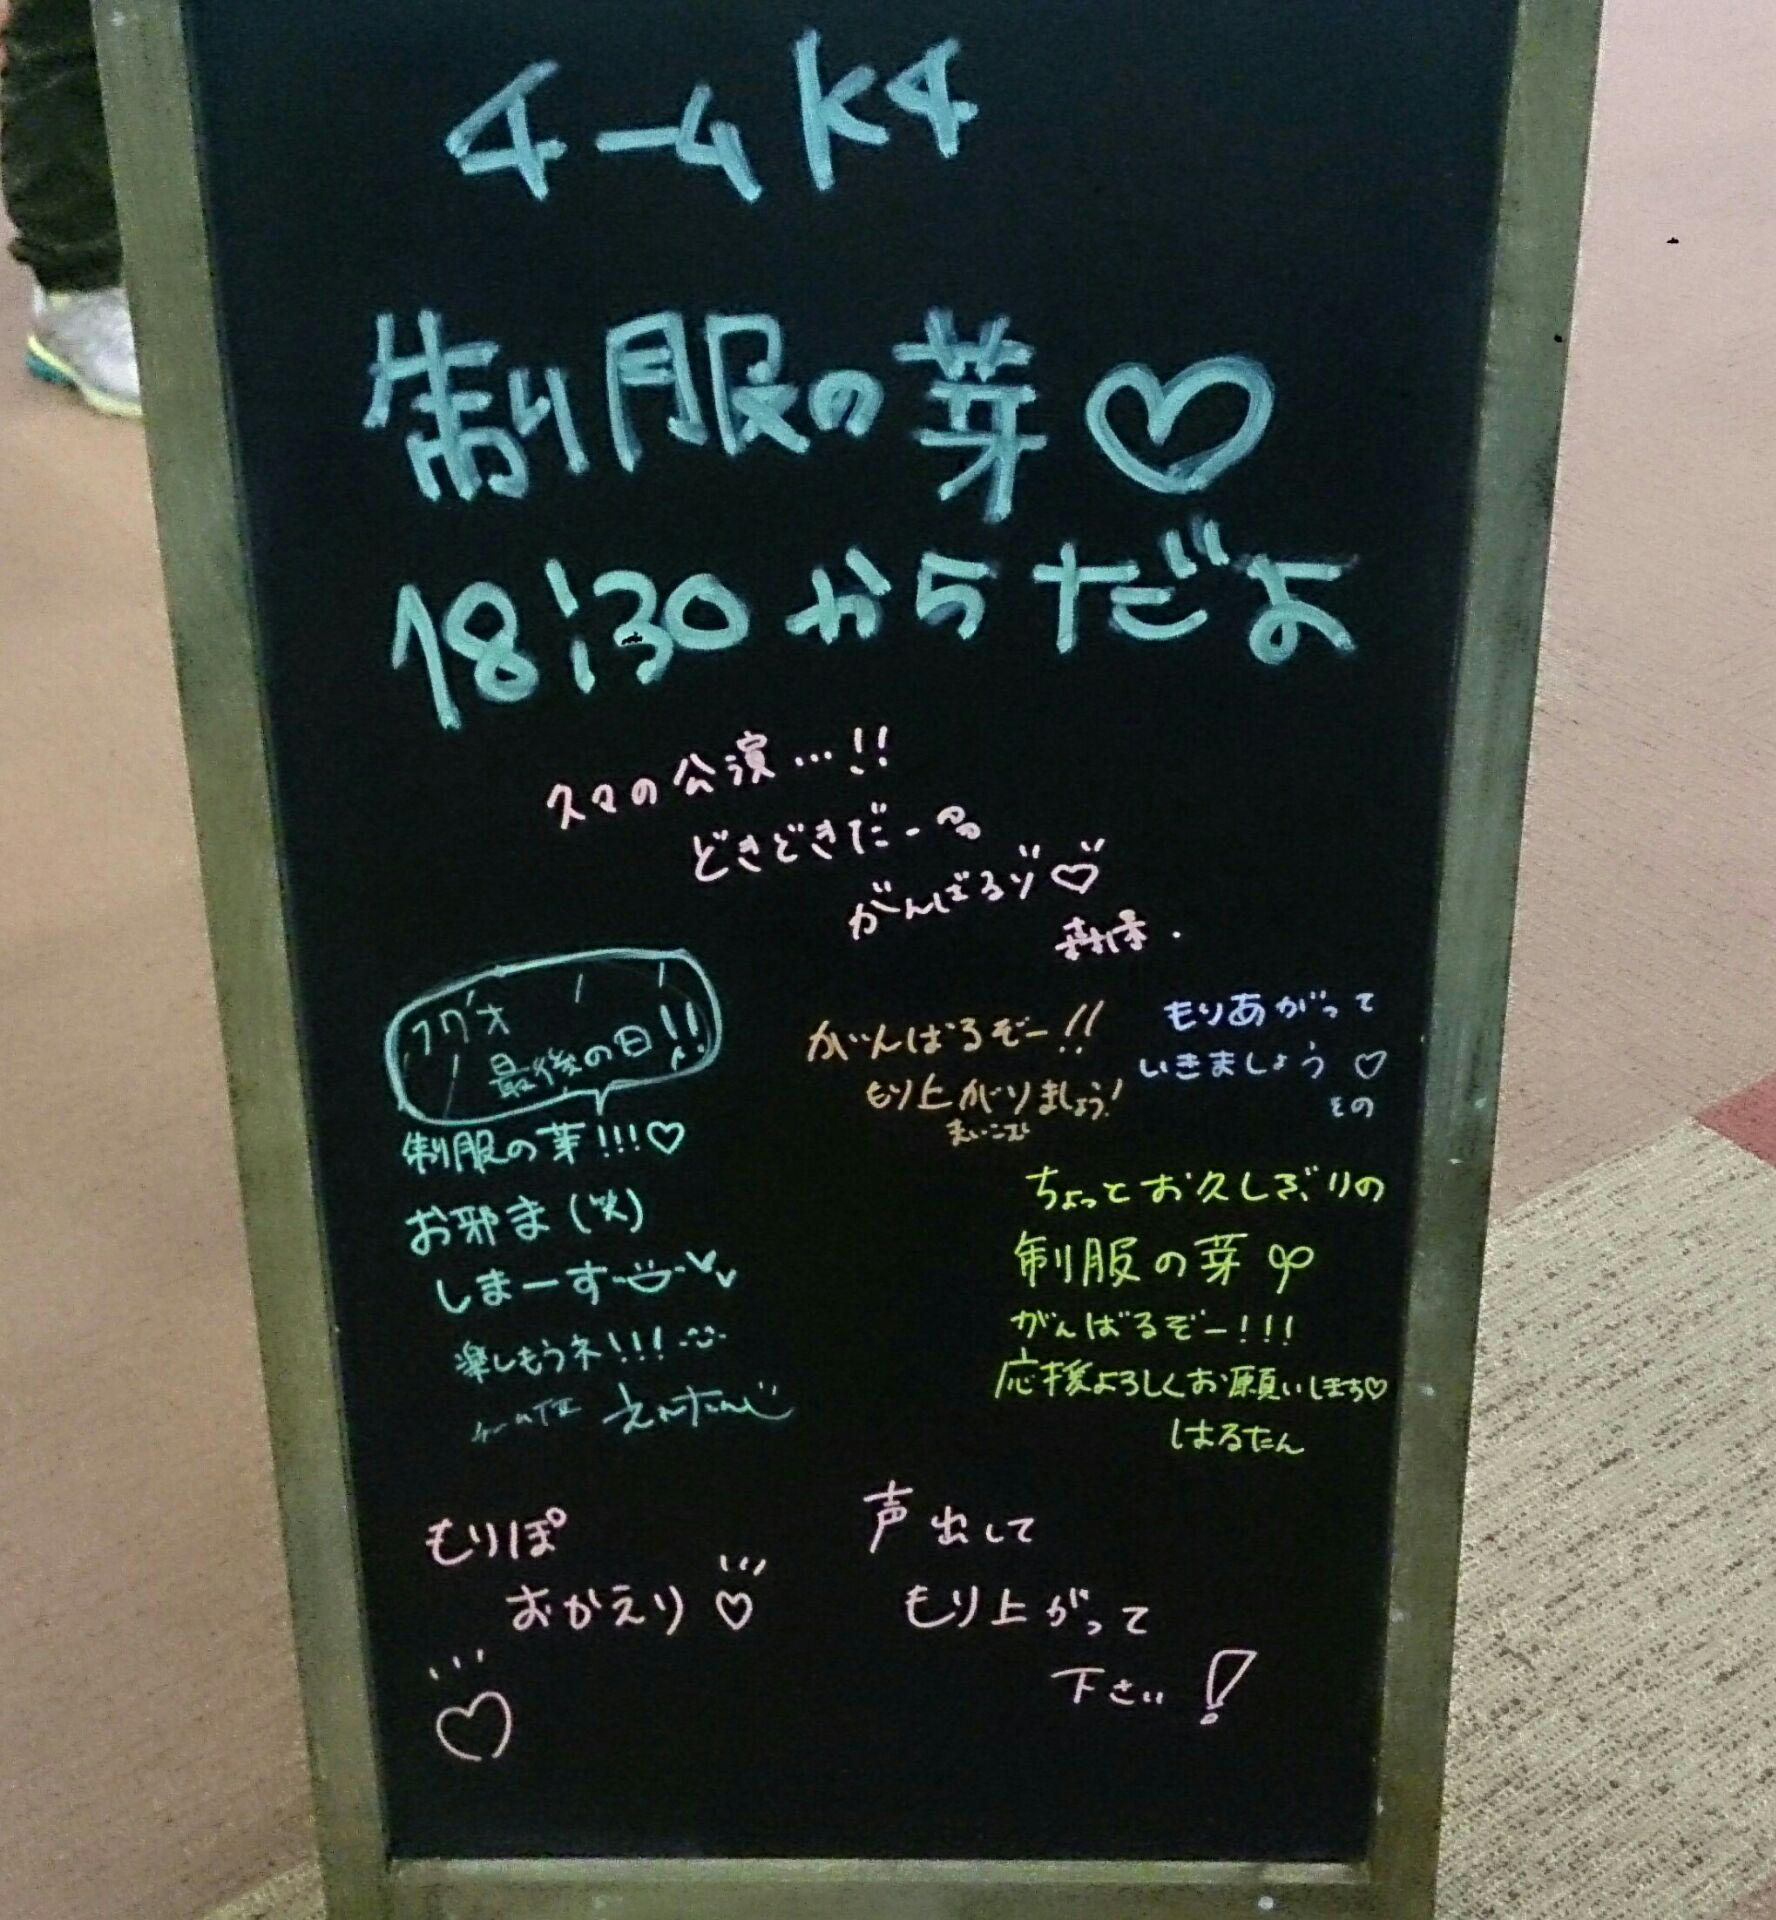 チームK4
制服の芽♡
18:30からだよ
久々の公演…!!
どきどきだー
がんばるゾ♡
最後の日!!
制服の芽!!!♡
お邪ま(笑)
しまーす
楽しもうネ!!!
がんばるぞー!!
もり上がりましょう!
もりあがって
いきましょう♡
その
ちょっとお久しぶりの
制服の芽
がんばるぞー!!!
応援よろしくお願いします♡
はるたん
もりぽ
おかえり♡
声出して
もり上がって
下さい!